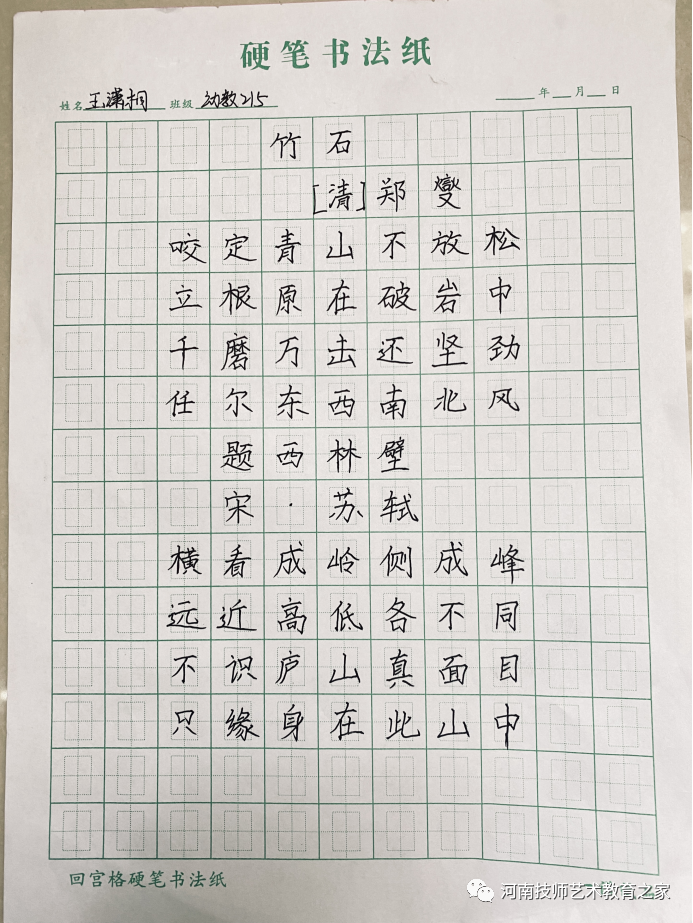 硬笔书法纸
姓名 王潇桐 班级 幼教215 年 月 日
竹石
[清]郑燮
咬定青山不放松
立根原在破岩中
千磨万击还坚劲
任尔东西南北风
题西林壁
宋·苏轼
横看成岭侧成峰
远近高低各不同
不识庐山真面目
只缘身在此山中
回宫格硬笔书法纸
河南技师艺术教育之家